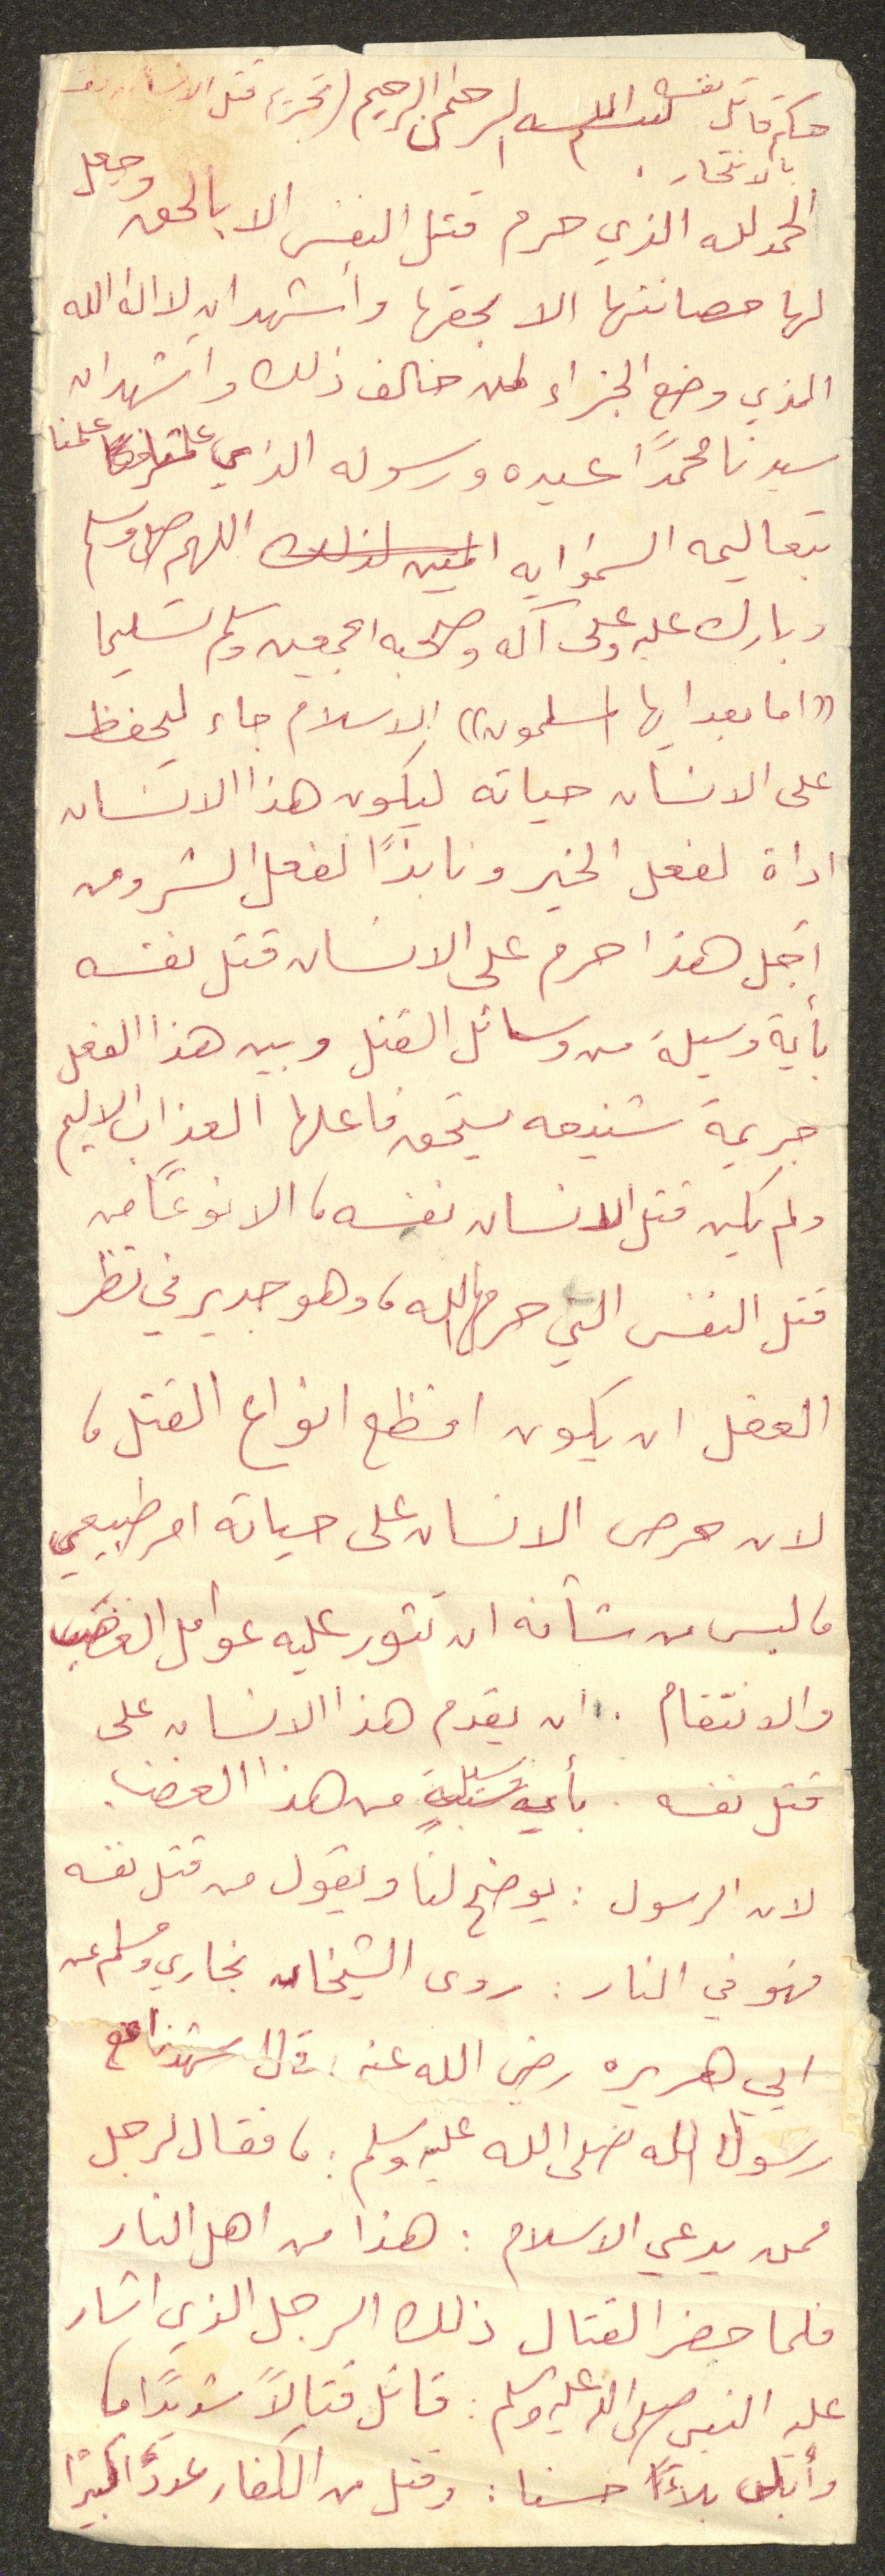 حكم قاتل نفسه بسم الله الرحمن الرحيم (تحريم قتل الانسان
بالانتحار.
الحمد لله الذي حرم قتل النفس الا بالحق وجعل
لها حصانتها الا بحقها وأشهد ان لا اله الا الله
الذي وضع الجزاء لمن خالف ذلك واشهد ان
سيدنا محمدًا عبده ورسوله الذي علمنا
بتعاليمه السماوايه اللهم صل وسلم
وبارك عليه وعلى آله وصحبه اجمعين وسلم تسليما
((اما بعد ايها المسلمون)) الاسلام جاء ليحفظ
على الانسان حياته ليكون هذا الانسان
اداة لفعل الخير ونابذًا لفعل الشر ومن
اجل هذا حرم على الانسان قتل نفسه
بأية وسيلة من وسائل القتل وبين هذا الفعل
جريمة شنيعه يستحق فاعلها العذاب الاليم
ولم يكن قتل الانسان نفسه، الا نوعًا من
قتل النفس التي حرمها الله، وهو جدير في نظر
العقل ان يكون افظع انواع القتل،
لان حرص الانسان على حياته امر طبيعي
، ليس من شأنه ان تثور عليه عوامل الغضب
والانتقام. ان يقدم هذا الانسان على
قتل نفسه. بأي وسيلة من هذا الغضب.
لان الرسول: يوضح لنا ويقول من قتل نفسه
فهو في النار: روى الشيخان بخاري ومسلم عن
ابي هريره رضي الله عنه: قال شهدنا مع
رسول الله صلى الله عليه وسلم:، فقال لرجل
ممن يدعي الاسلام: هذا من اهل النار
فلما حضر القتال ذلك الرجل الذي اشار
عليه النبي صلى الله عليه وسلم: قاتل قتالاً شديدًا،
وأبلى بلاءًا حسنا: وقتل من الكفار عددًا كبيرًا